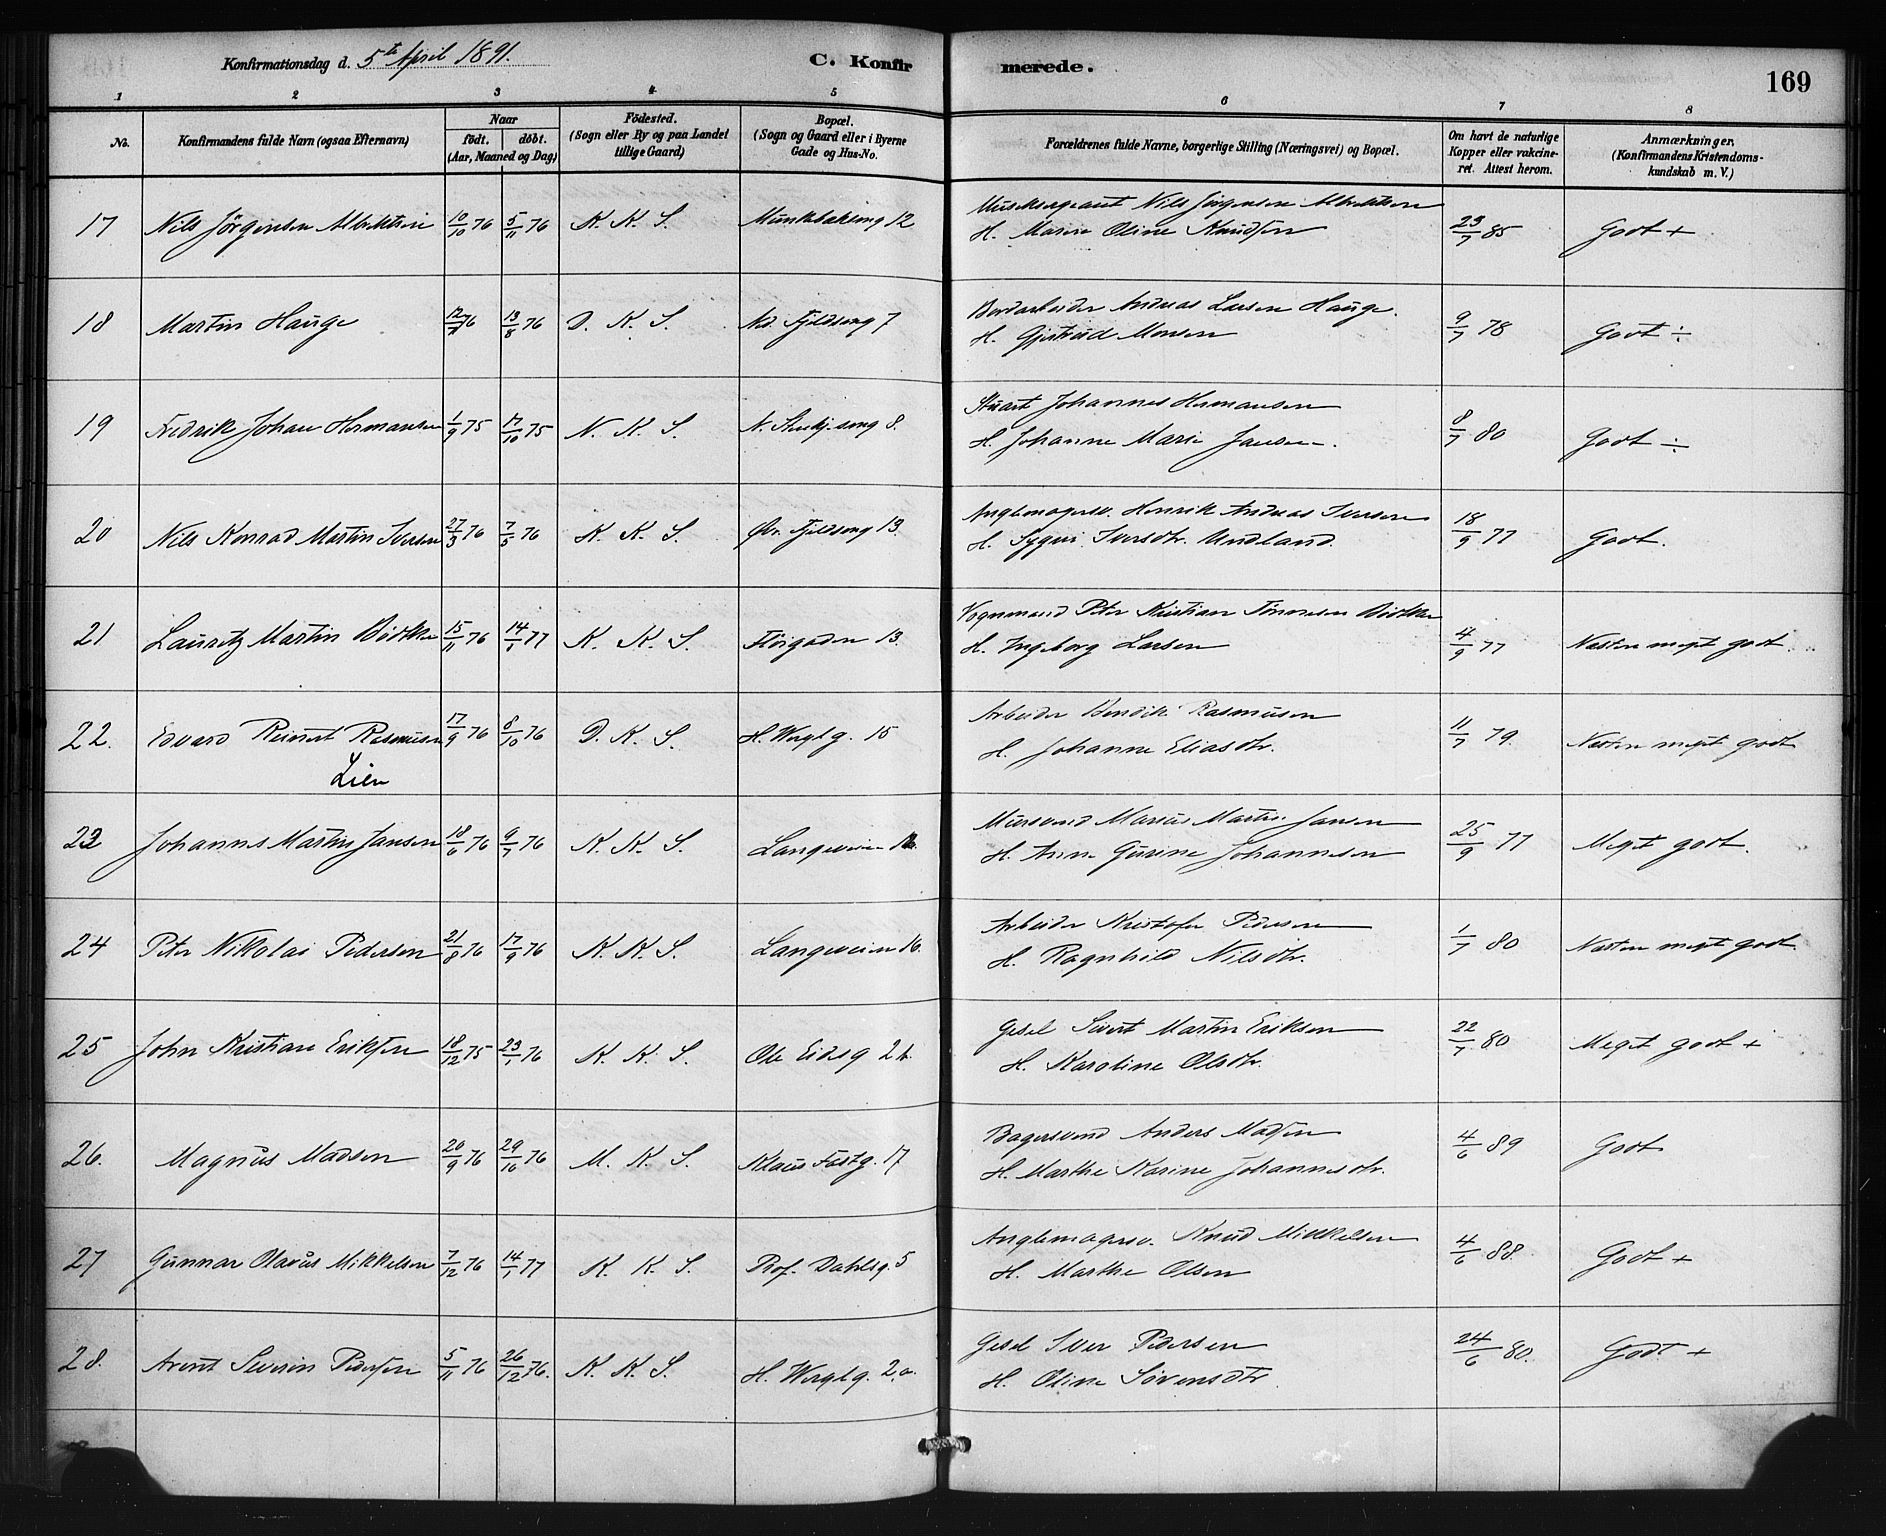 Konfirmationsdag d. 5te April 1891.
C. Konfir
merede.
169
1 2 3 4 5 6 7 8
No. Konfirmandens fulde Navn (ogsaa Efternavn) Naar födt. döbt. (Aar, Maaned og Dag) Födested. (Sogn eller By og paa Landet tillige Gaard) Bopæl. (Sogn og Gaard eller i Byerne Gade og Hus-No. Forældrenes fulde Navne, borgerlige Stilling (Næringsvei) og Bopæl. Om havt de naturlige Kopper eller vakcineret. Attest herom. Anmærkninger. (Konfirmandens Kristendomskundskab m. V.)
17 Nils Jörgensen Albrektsen 10/10 76 5/11 76 K. K. S. 12 Nils Jörgensen Albrektsen
H. Marie Oline Knudsen 23/7 85 Godt +
18 Martin Hauge 12/7 76 13/8 76 D. K. S. Nd. Fjeldsmg 7 Andreas Larsen Hauge.
H. Gjertrud Monsen 9/7 78 Godt ÷
19 Fredrik Johan Hermansen 1/9 75 17/10 75 N. K. S. 8. Stuart Johannes Hermansen
H. Johanne Marie Jansen. 8/7 80 Godt ÷
20 Nils Konrad Martin Iversen 27/3 76 7/5 76 K. K. S. Øv. Fjeldsmg 13. Henrik Andreas Iversen
H. Iversdtr. Undland. 18/9 77 Godt.
21 Lauritz Martin Bödtker 15/11 76 14/1 77 K. K. S. Fløigaden 13. Vognmand Peter Kristian Tönnesen Bödtker
H. Ingeborg Larsen 4/9 77 Næsten meget godt.
22. Edvard Reinert Rasmusen 17/9 76 8/10 76 D. K. S. H. Wergl g. 15 Arbeider Bendik Rasmusen
Lien H. Johanne Eliasdtr. 11/7 79. Næsten meget godt
23 Johannes Martin Jansen 18/6 76 9/7 76 K. K. S. Langeveien Mursvend Marius Martin Jansen
H. Anne Gurine Johannesen 25/9 77 Meget godt.
24 Peter Nikolai Pedersen 21/8 76 17/9 76 K. K. S. Langeveien 16. Arbeider Kristofer Pedersen
H. Ragnhild Nilsdtr. 1/7 80 Næsten meget godt.
25 John Kristian Eriksen 18/12 75 23/1 76 K. K. S. Ole Eidsg Gesel Sivert Martin Eriksen
H. Karoline Olsdtr. 22/7 80 Meget godt +
26. Magnus Madsen 20/9 76 29/10 76 M. K. S. Klaus Fostg. 17 Bagersvend Anders Madsen
H. Marthe Karine Johannesdtr. 4/6 89 Godt
27 Gunnar Olavus Mikkelsen 7/12 76 14/1 77 K. K. S. Prof. Dahlsg. 5 Anglemagersv. Knud Mikkelsen
H. Marthe Olsen 4/6 88. Godt +
28. Arent Severin Pedersen 5/11 76 26/12 76. K. K. S. H. Wergl g. 2.a. Gesel Iver Pedersen
H. Oline Sörensdtr 24/6 80. Godt +